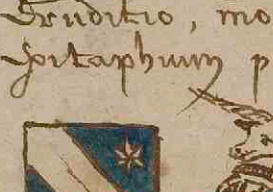 Eruditio, mo
Epitaphium p